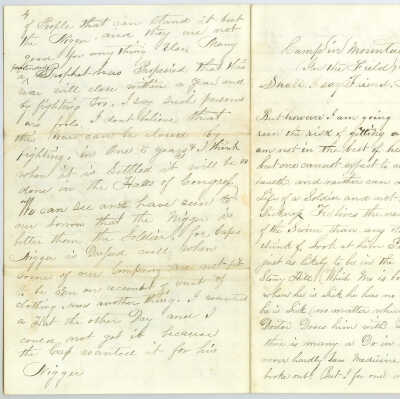 4
of People that can stand it but
the Nigger and they are not
good for any thing Else Many
yesterday
a Prophet has Propesied that this
war will close within a year and
by fighting too. I say such persons
are fools I dont believe that
this war can be closed by
fighting, in three to years & I think
when it is settled it will be
done in the Halls of Congress
We can see and have seen to
our sorrow that the Nigger is
better then the Soldier, for Caps
Nigger is Dressed well when
some of our Company are not fit
to be seen on account of want of
clothing. Now another thing. I wanted
a Hat the other Day and I
could not get it because
the Cap wanted it for his
Nigger
Camp in Mountai
In the Field
Shall I say Friend
But however I am going
run the risk of getting a
am not in the best of hea
but one cannot expect to
health and neither can a
life of a Soldier and not
Sickness he lives the
of the Swine than any
think of look at him
just as likely to be in the
Stony Hill. While he is
when he is sick he has no
he is sick, (no matter whic
Doctor Doses him with
there is many a Do
never hardly saw Medicine
broke out. But I for one